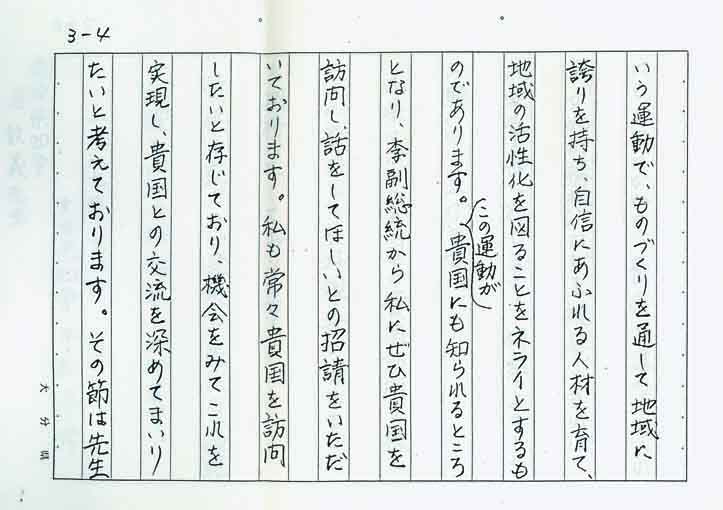 3-4
いう運動で、ものづくりを通して地域に
誇りを持ち、自信にあふれる人材を育て、
地域の活性化を図ることをネライとするも
のであります。この運動が貴国にも知られるところ
となり、李副総統から私にぜひ貴国を
訪問し、話をしてほしいとの招請をいただ
いております。私も常々貴国を訪問
したいと存じており、機会をみてこれを
実現し、貴国との交流を深めてまいり
たいと考えております。その節は先生
大分県